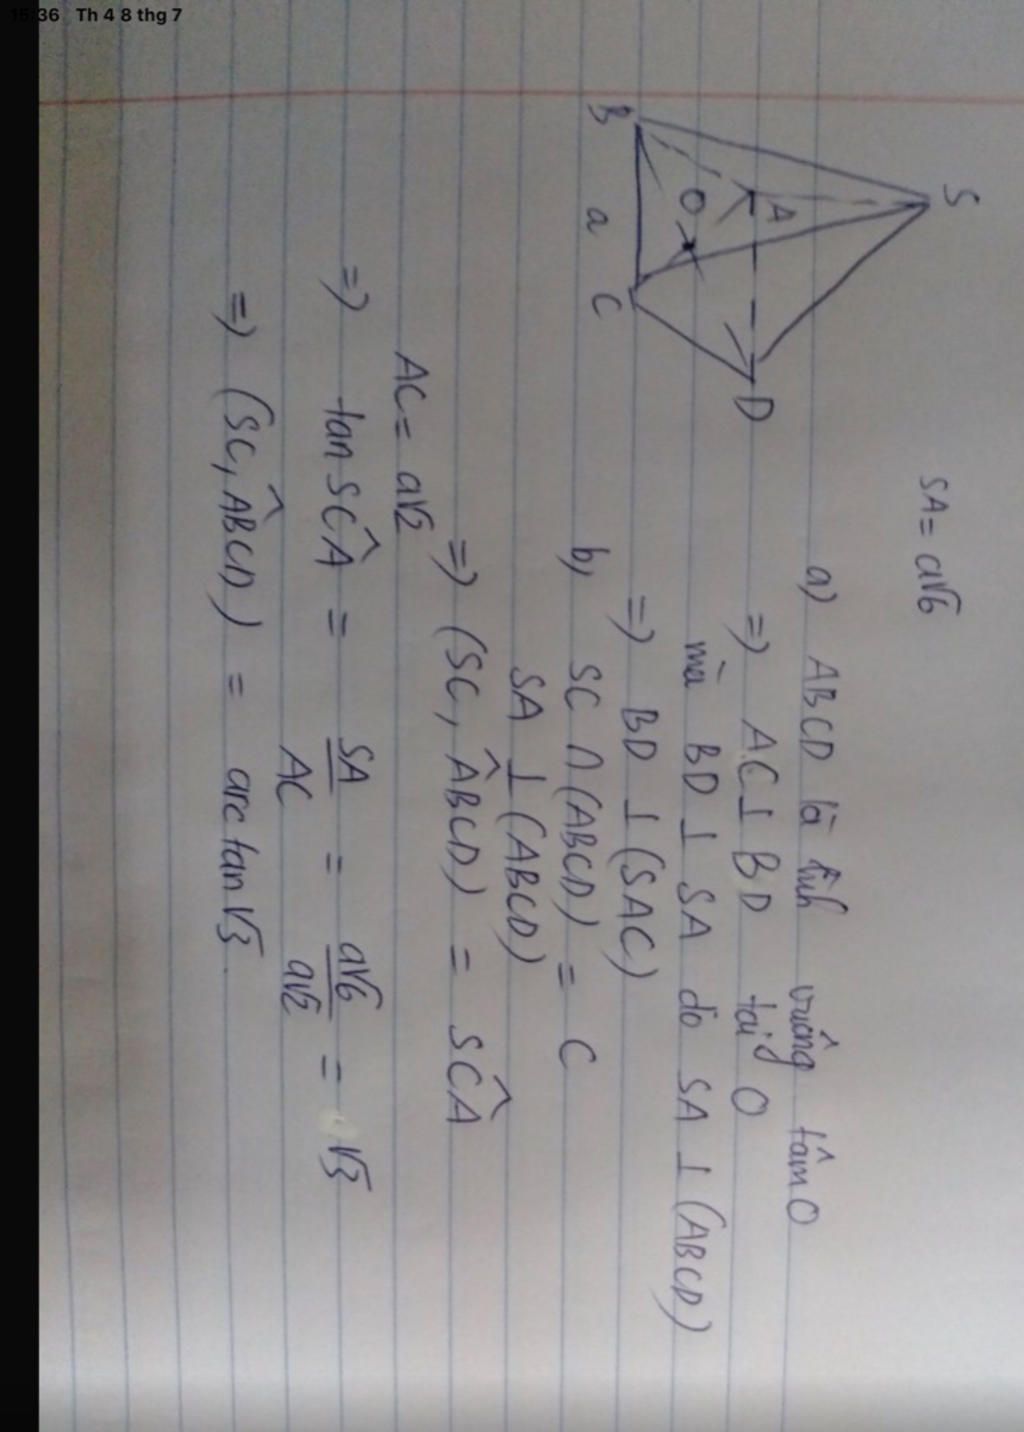 15:36 Th 4 8 thg 7
S
A
B
O
D
a
C
SA = a√6
a) ABCD là hình vuông tâm O
=> AC ⊥ BD tại O
mà BD ⊥ SA do SA ⊥ (ABCD)
=> BD ⊥ (SAC)
b, SC ∩ (ABCD) = C
SA ⊥ (ABCD)
=> (SC, ABCD)^ = SCA^
AC = a√2
=> tan SCA^ = SA/AC = a√6/a√2 = √3
=> (SC, ABCD)^ = arctan √3